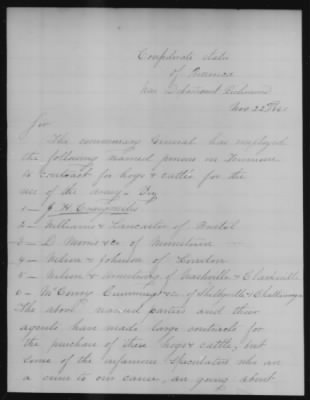 Confederate States
of America
War Department Richmond
Nov 22 1861
Sir
The commissary General has employed
the following named persons in Tennessee
to contract for hogs & cattle for the
use of the army. Viz
1 — J H Craigmiles
2 — Williams & Lancaster of Bristol
3 — D. Morris & co of Morristown
4 — Nelson & Johnson of Loudon
5 — Nelson & Armstrong of Nashville & Clarksville
6 — McEwing Cummings & co of Shelbyville & Chattanooga
The above named parties and their
agents have made large contracts for
the purchase of these hogs & cattle, but
some of the infamous Speculators who are
a curse to our cause, are going about